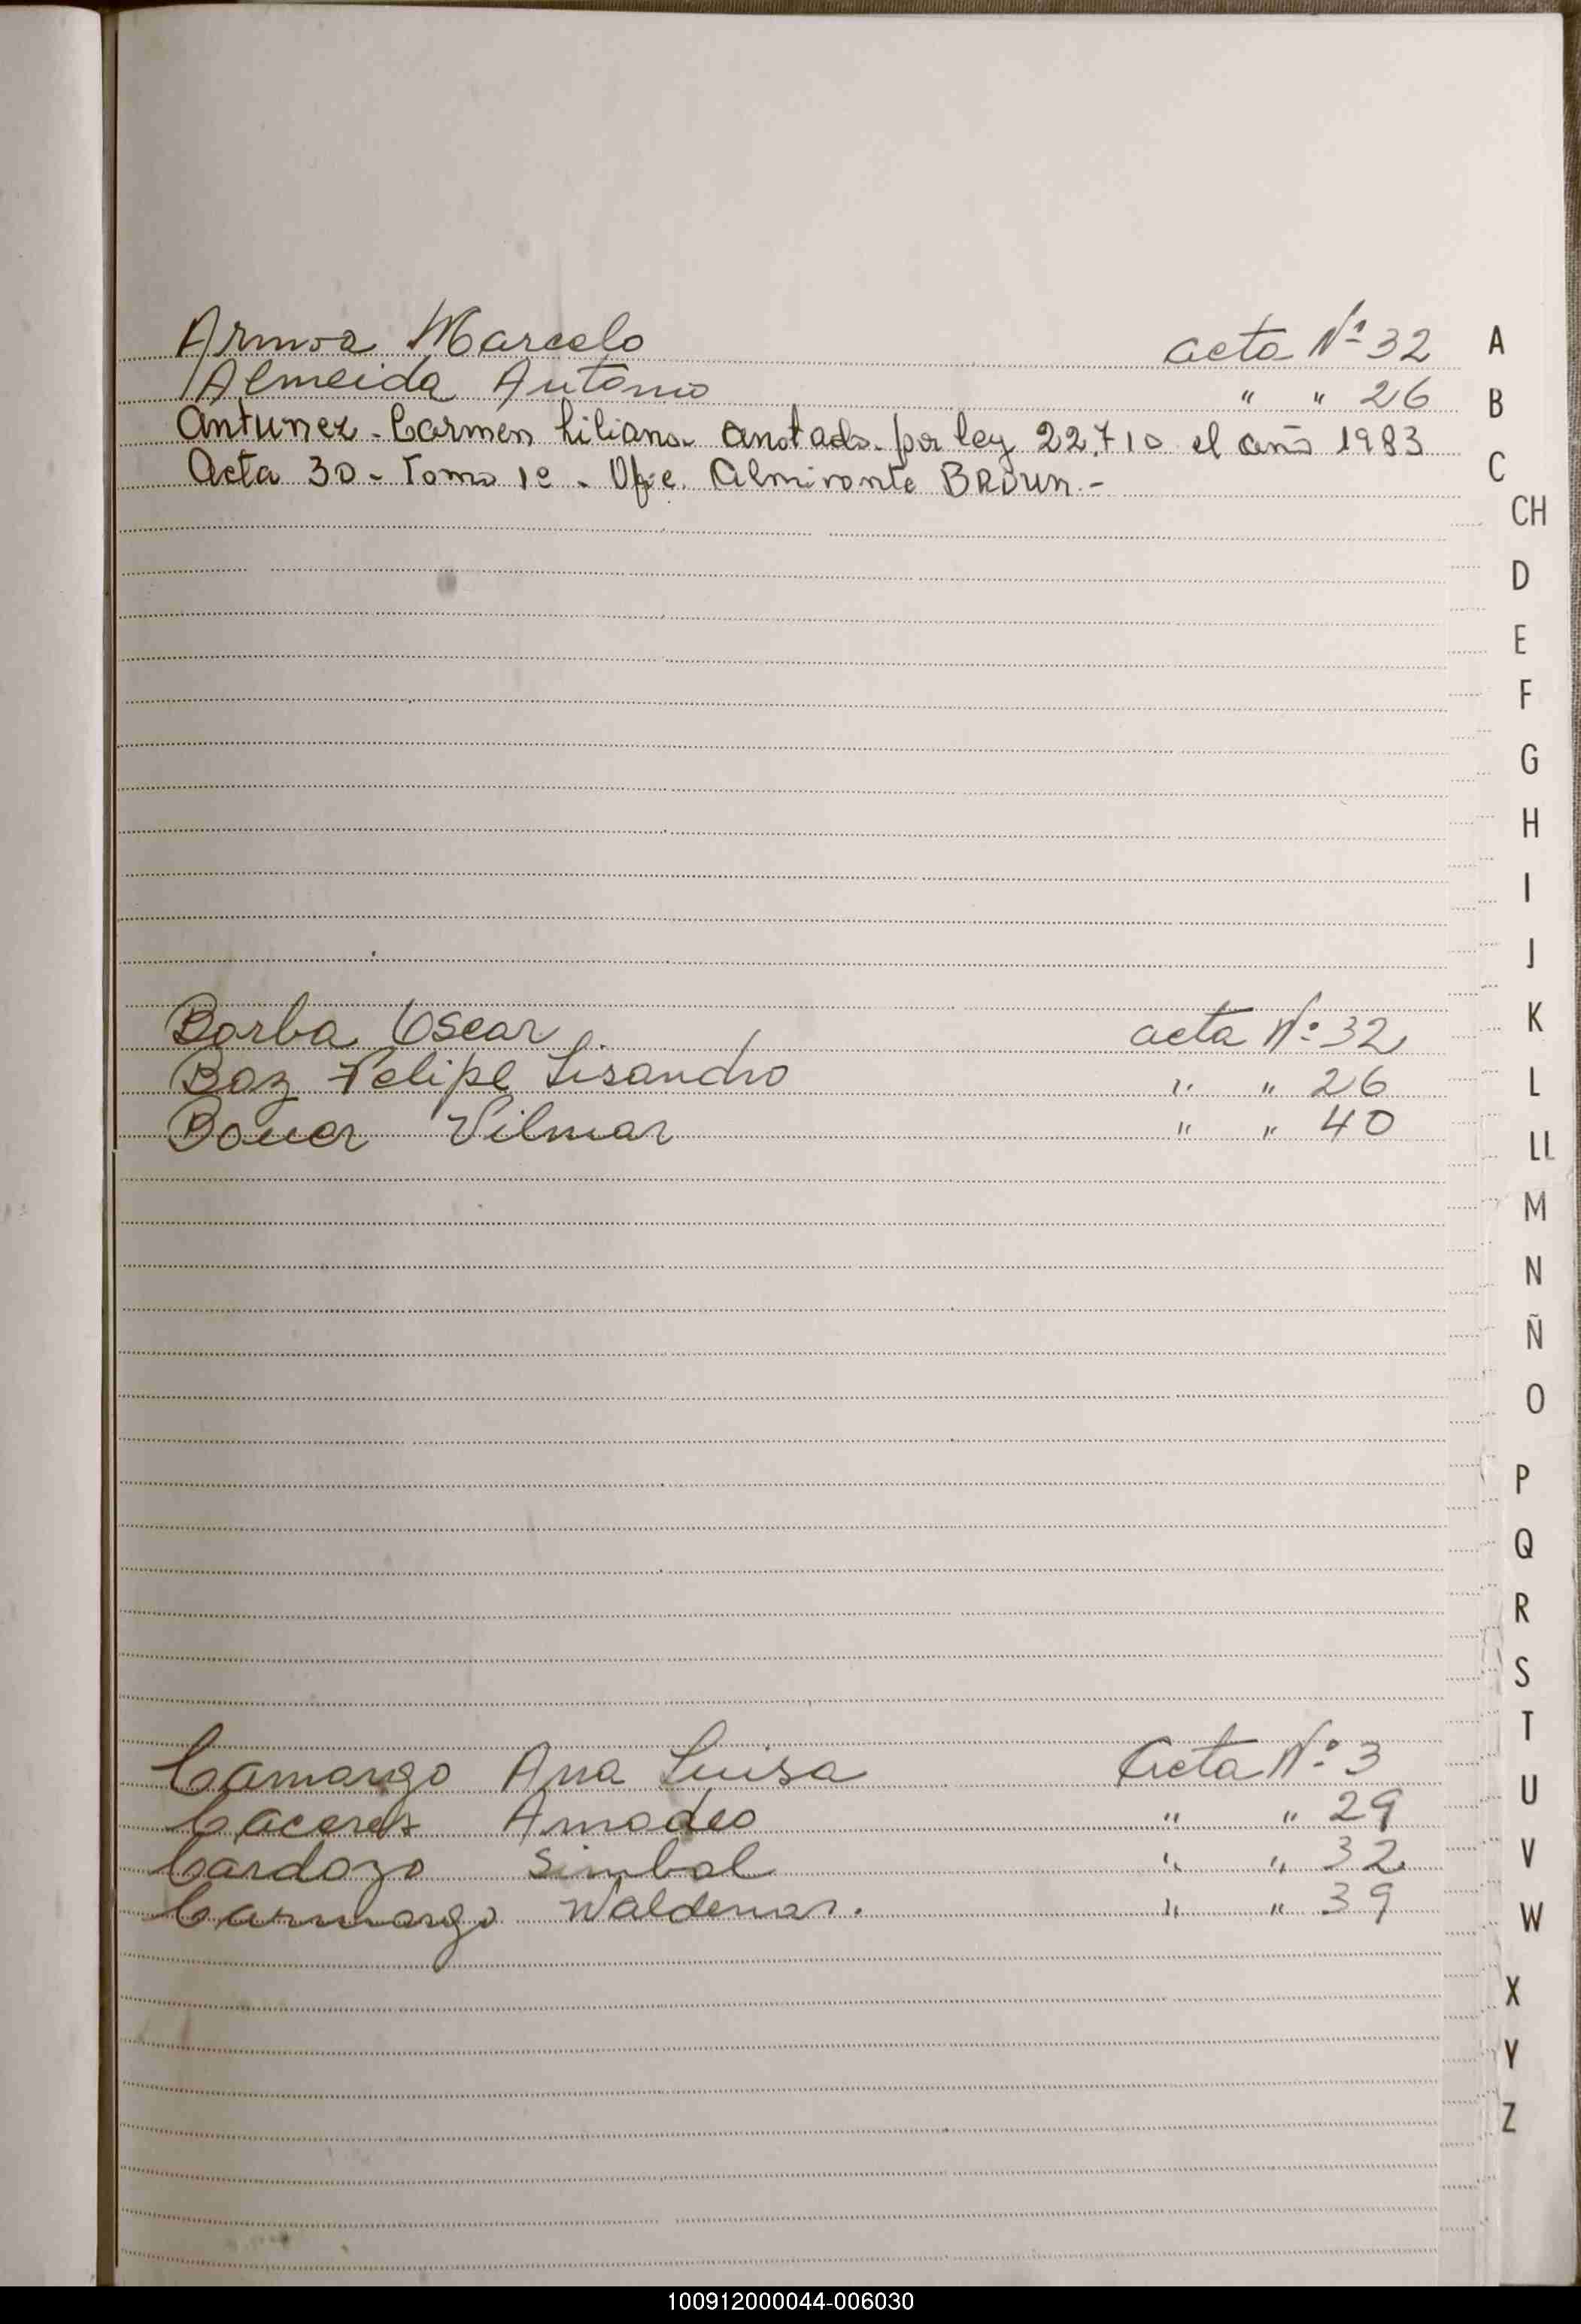 Armoa Marcelo acta Nº 32
Almeida Antonio " " 26
Antunez - Carmen Liliana - anotada - por ley 22.710 el año 1983
Acta 30 - Tomo 1º - Ofic. Almirante BROUn. -
Borba Oscar acta Nº 32
Boz Felipe Lisandro " " 26
Bouer Vilmar " " 40
Camargo Ana Luisa Acta Nº 3
Caceres Amadeo " " 29
Cardozo Simbal " " 32
Carmargo Waldemar. " " 39
A
B
C
CH
D
E
F
G
H
I
J
K
L
LL
M
N
Ñ
O
P
Q
R
S
T
U
V
W
X
Y
Z
100912000044-006030